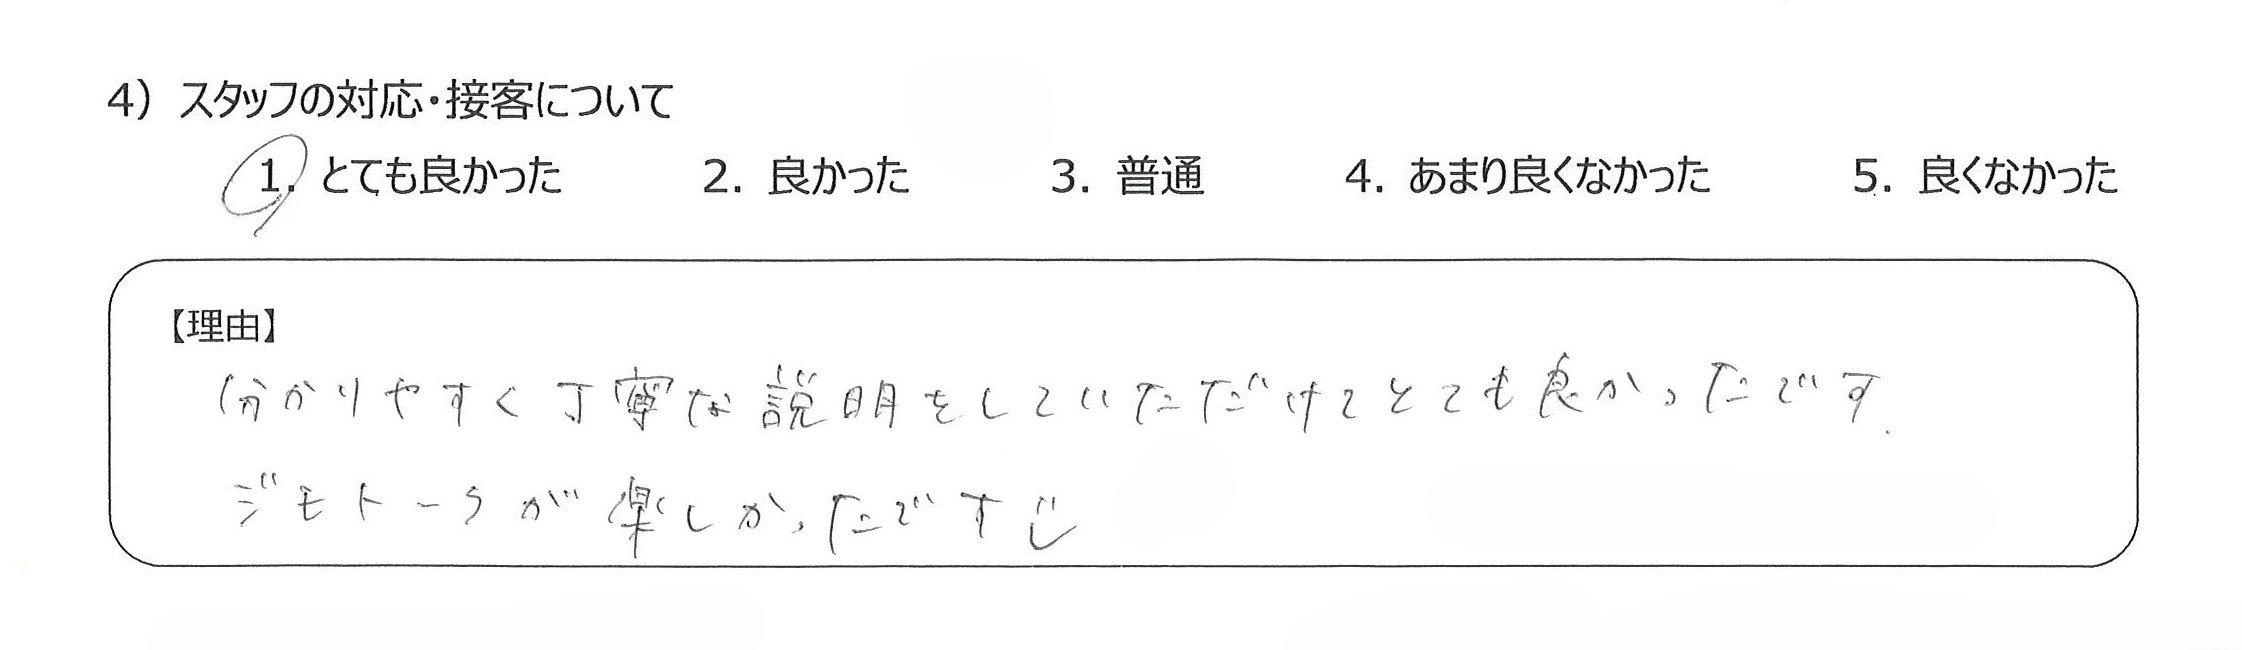 4）スタッフの対応・接客について
1. とても良かった 2. 良かった 3. 普通 4. あまり良くなかった 5. 良くなかった
【理由】
分かりやすく丁寧な説明をしていただけてとても良かったです.
ジモトークが楽しかったです